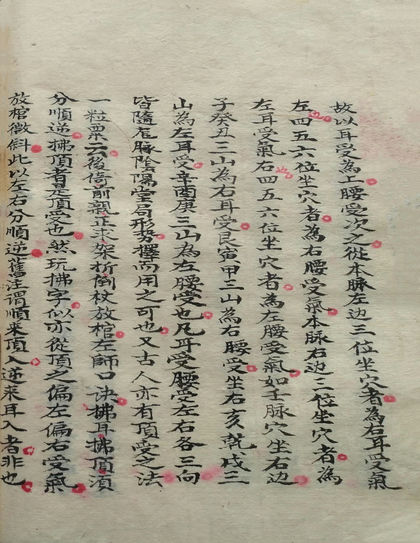 故以耳受為上腰受次之從本脉左边三位坐穴者為右耳受氣
左四五六位坐穴者為右腰受氣本脉右边三位坐穴者為
左耳受氣右四五六位坐穴者為左腰受氣如壬脉穴坐右边
子癸丑三山為右耳受艮寅甲三山為右腰受坐右亥乾戌三
山為左耳受辛酉庚三山為左腰受也凡耳受腰受左右各三向
皆隨龙脉陰陽堂局形势擇而用之可也又古人亦有頂受之法
一粒粟云後倚前親正求架折倒杖放棺左師口诀拂耳拂頂須
分順逆拂頂者是頂受也然玩拂字似亦從頂之偏左偏右受氣
放棺微斜此以左右分順逆舊注谓順来頂入逆来耳入者非也